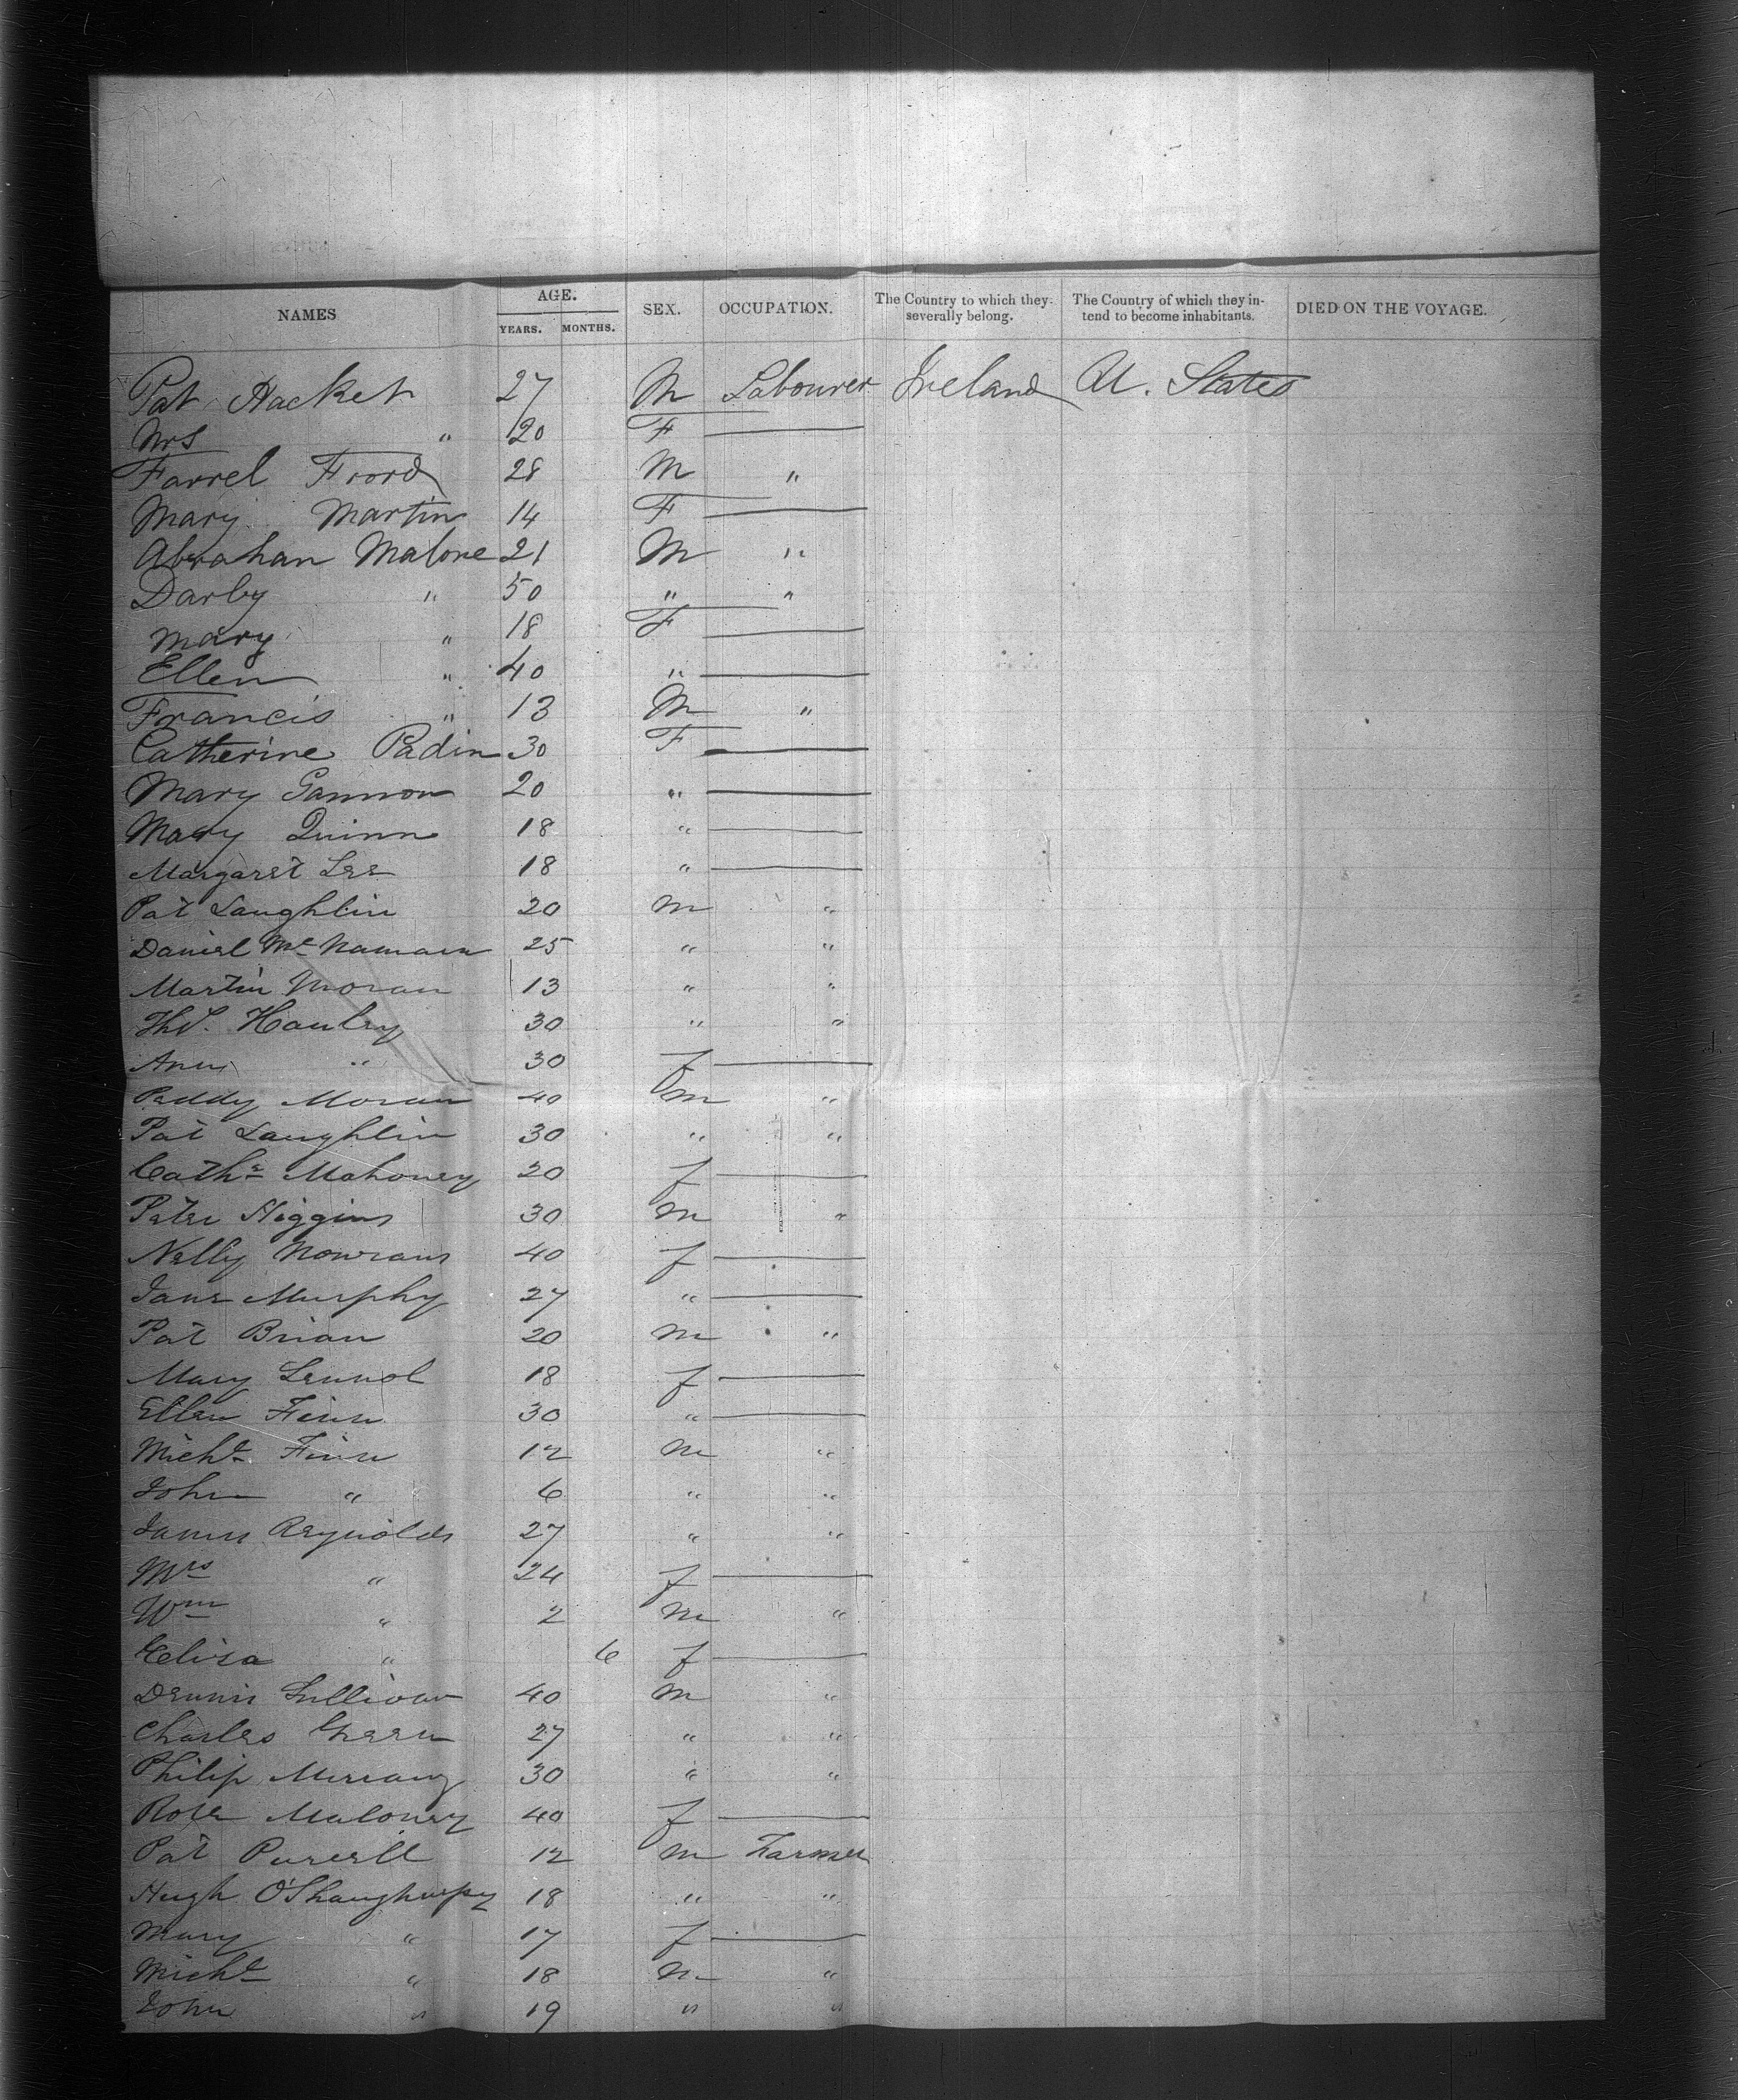 NAMES AGE. YEARS. MONTHS. SEX. OCCUPATION. The Country to which they severally belong. The Country of which they intend to become inhabitants. DIED ON THE VOYAGE.
Pat Hacket 27 M Labourer Ireland U. States
Mrs " 20 F —
Farrel Froord 28 M "
Mary Martin 14 F —
Abrahan Malone 21 M "
Darby " 50 " "
Mary " 18 F —
Ellen " 40 " —
Francis " 13 M "
Catherine Padin 30 F —
Mary Gannon 20 " —
Mary Quinn 18 " —
Margaret Lee 18 " —
Pat Laughlin 20 M "
Daniel McNamara 25 " "
Martin Moran 13 " "
Ths. Hanley 30 " "
Ann " 30 f —
Peddy Moran 40 m "
Pat Laughlin 30 " "
Cathe Mahoney 20 f —
Peter Higgins 30 m "
Nelly 40 f —
Jane Murphy 27 " —
Pat Brian 20 m "
Mary 18 f —
Ellen Finn 30 " —
Michl Finn 12 m "
John " 6 " "
James Reynolds 27 " "
Mrs " 24 f —
Wm " 2 m "
Eliza " 6 f —
Dennis Sullivan 40 m "
Charles Green 27 " "
Philip 30 " "
Rose Maloney 40 f —
Pat Purcell 12 m Farmer
Hugh O'Shaughnessy 18 " "
Mary " 17 f —
Michl " 18 m "
John " 19 " "